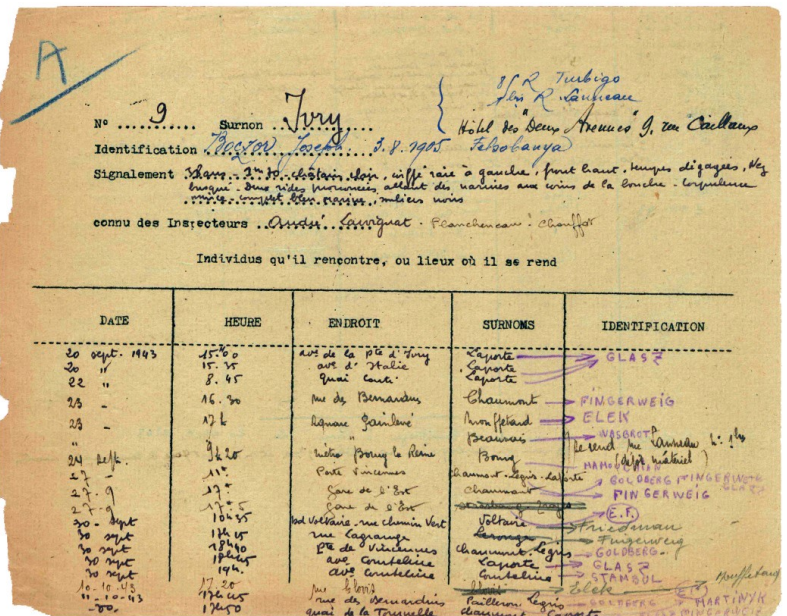 A
8 R Turbigo
1 bis R Lanneau
N° 9 Surnon Ivry Hôtel des "Deux Avenues" 9, rue Caillaux
Identification Boczor Joseph. 3.8.1905. Felsobanya
Signalement 38 ans - 1m70 - châtain clair, coiffé raie à gauche, front haut, tempes dégagées, Nez
busqué - Deux rides prononcées, allant des narines aux coins de la bouche - Corpulence
mince - complet bleu marine, souliers noirs
connu des Inspecteurs André Lavignat - Plancheneau - Chouffot
Individus qu'il rencontre, ou lieux où il se rend
DATE HEURE ENDROIT SURNOMS IDENTIFICATION
20 sept. 1943 15.00 ave de la Pte d'Ivry Laporte GLASZ
20 " 15.35 ave d'Italie Laporte
22 " 8.45 quai Conti Laporte
23 - 16.30 rue des Bernardins Chaumont FINGERWEIG
23 - 17h square Painlevé Mouffetard ELEK
" Beauvais WASBROT
24 sept. 9h20 métro Bourg la Reine Bourg Se rend rue Lanneau n° 1 bis (dépôt matériel)
27 - 11h Porte Vincennes Chaumont - Légris - Laporte GOLDBERG FINGERWEIG GLASZ
27 - 9 17h Gare de l'Est Chaumont FINGERWEIG
27 - 9 Gare de l'Est
30 - sept 10h35 bd Voltaire - rue Chemin Vert Voltaire E.F. Friedman
30 sept 17h15 rue Lagrange Fingerweig
30 sept 18h40 Pte de Vincennes Chaumont Légris GOLDBERG -
30 sept 18h45 ave Courteline Laporte GLASZ
30 sept 19h. ave Courteline Courteline STAMBUL
10-10-43 17.20 rue Clovis Elek Mouffetard
10-10-43 17h45 rue des Bernardins Papillon Légris GOLDBERG MARTINYK
-do- 17h50 quai de la Tournelle Chaumont Laporte